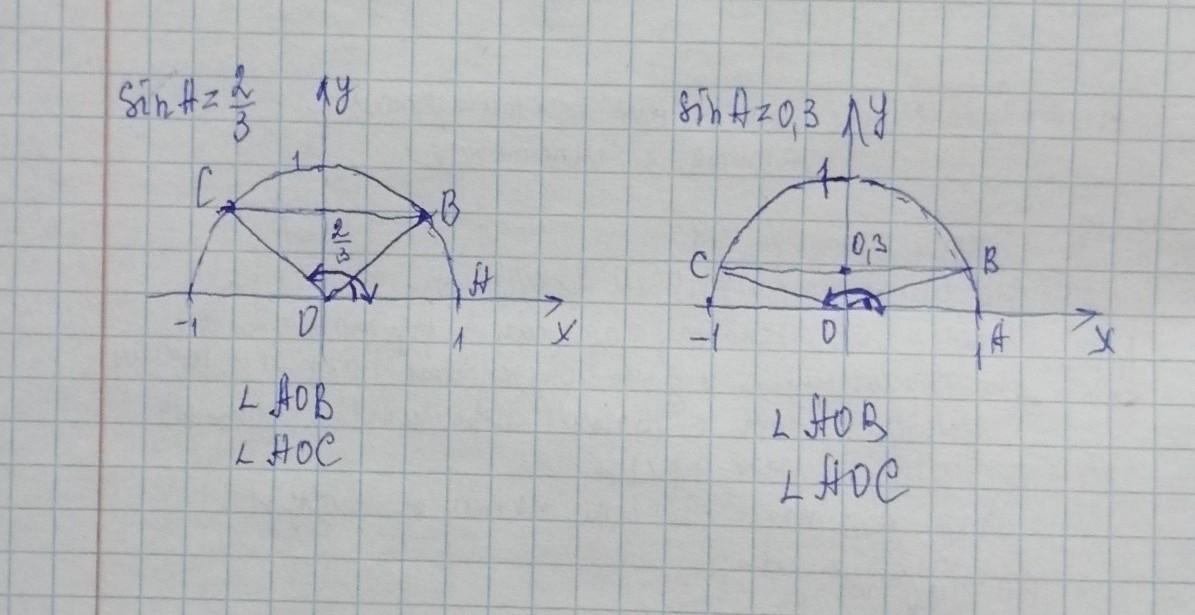 sin A = 2/3
y
1
C
B
2/3
A
-1
O
1
x
∠ AOB
∠ AOC
sin A = 0,3
y
1
0,3
C
B
-1
O
1
A
x
∠ AOB
∠ AOC